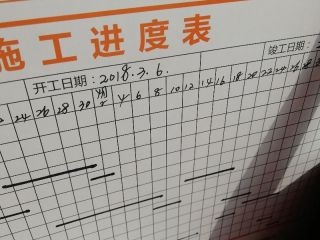 施工进度表
开工日期：2018.3.6. 竣工日期：
24 26 28 30 4 6 8 10 12 14 16 18 20 22 24 26 28